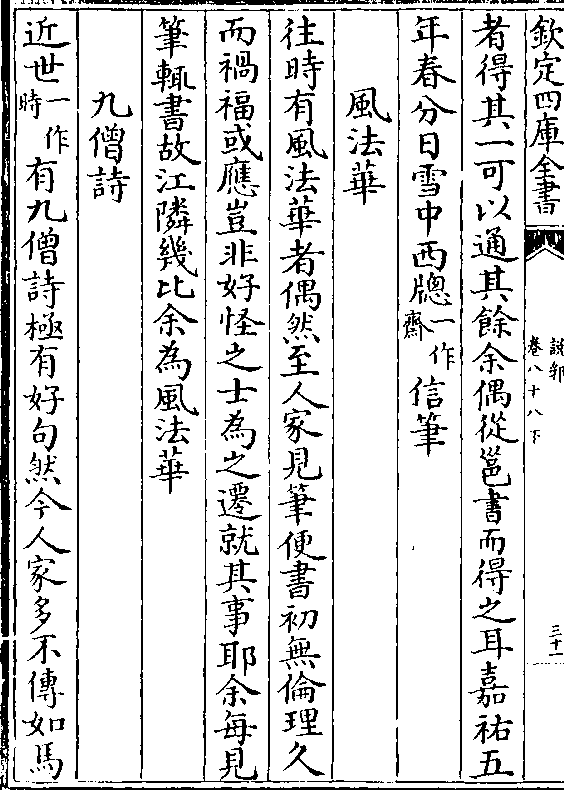 欽定四庫全書
說郛
卷八十八下
三十一
者得其一可以通其餘余偶從邕書而得之耳嘉祐五
年春分日雪中西牕一作齋信筆
風法華
往時有風法華者偶然至人家見筆便書初無倫理久
而禍福或應豈非好怪之士為之遷就其事耶余每見
筆輒書故江隣幾比余為風法華
九僧詩
近世一作時有九僧詩極有好句然今人家多不傳如馬